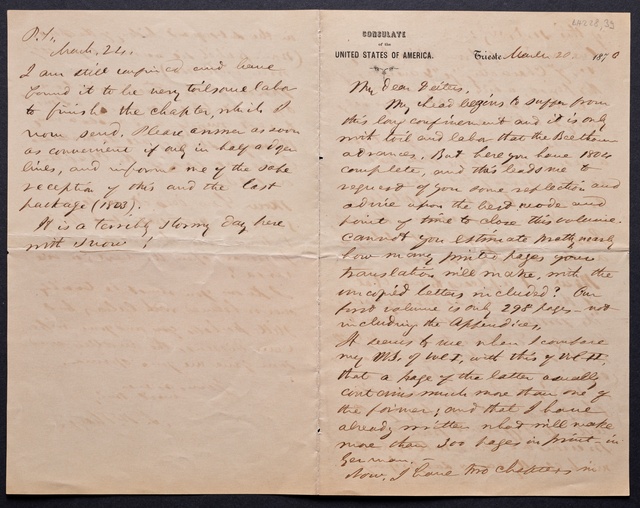 P.S.
March 24.
I am still confined and have
found it to be very toilsome labor
to finish the chapter, which I
now send. Please answer as soon
as convenient if only in half a dozen
lines, and inform me of the safe
reception of this and the last
package (1803).
It is a terribly stormy day here
with snow!
CONSULATE
of the
UNITED STATES OF AMERICA.
Trieste March 20 1870
My dear Deiters,
My head begins to suffer from
this long confinement and it is only
with toil and labor that the Beethoven
advances. But here you have 1804
complete, and this leads me to
request of you some reflection and
advice upon the best mode and
point of time to close this volume.
Cannot you estimate pretty nearly
how many printed pages your
translation will make, with the
uncopied letters included? Our
first volume is only 298 pages not
including the Appendices.
It seems to me when I compare
my MS. of vol I, with this of vol II,
that a page of the latter usually
contains much more than one of
the former; and that I have
already written what will make
more than 300 pages in print in
German.
Now, I have two chapters in